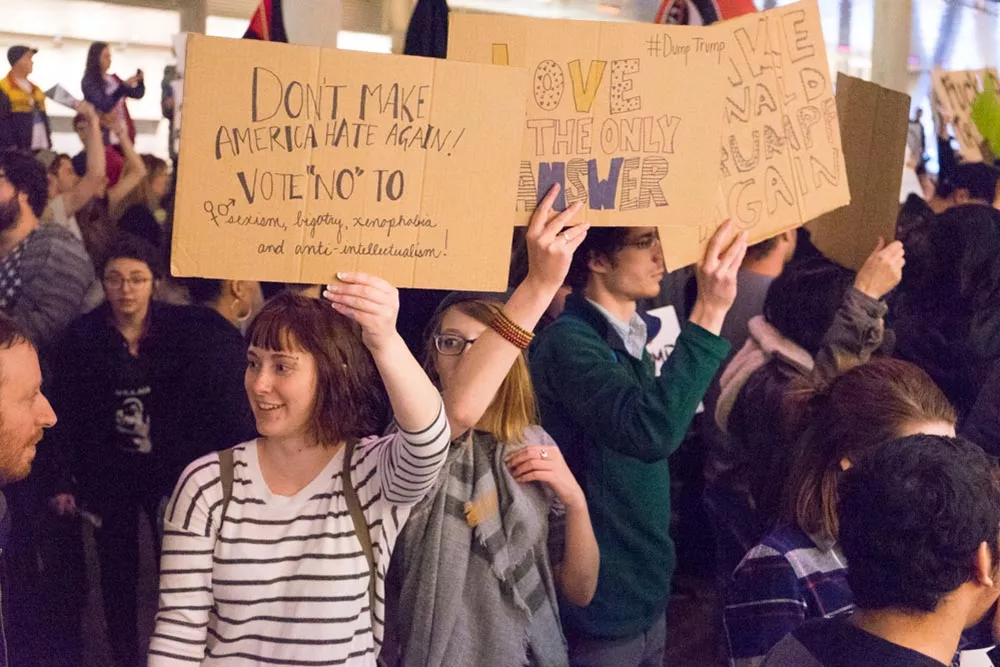 DON'T MAKE
AMERICA HATE AGAIN!
VOTE "NO" TO
sexism, bigotry, xenophobia
and anti-intellectualism!
#Dump Trump
LOVE
THE ONLY
ANSWER
KE
NALD
RUMPF
GAIN